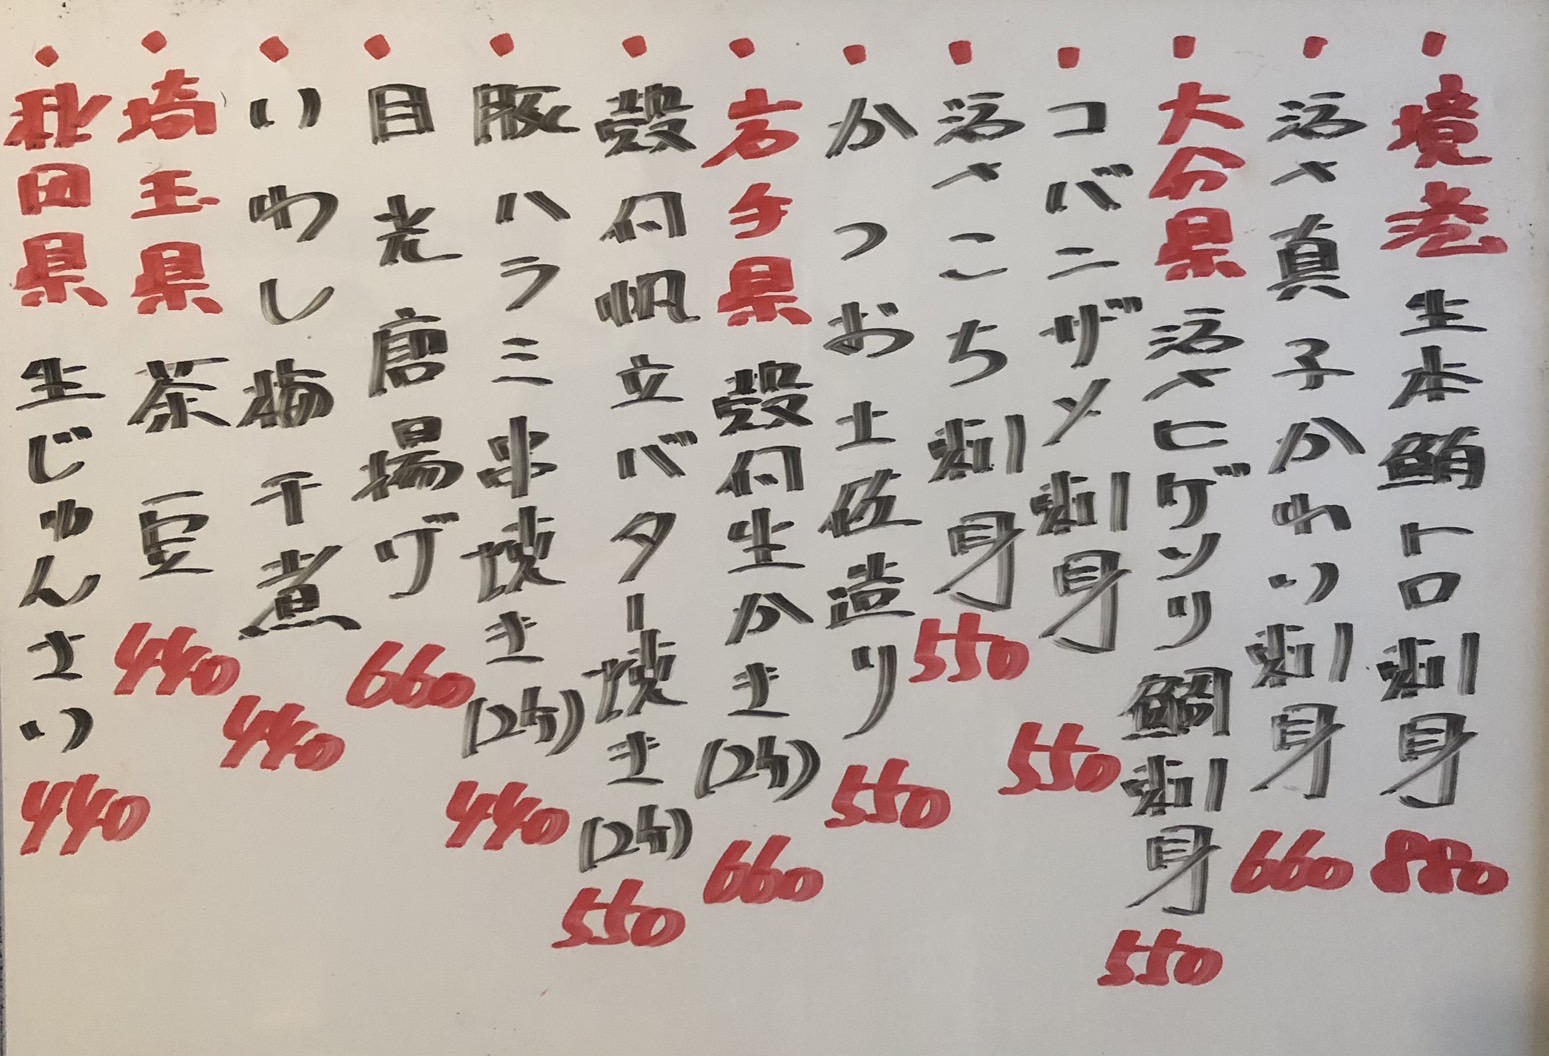 ・境港 生本鮪トロ刺身 880
・活〆真子かわり刺身 660
・大分県 活〆ヒゲソリ鯛刺身 550
・コバンザメ刺身 550
・活〆こち刺身 550
・かつお土佐造り 550
・岩手県 殻付生かき(2ケ) 660
・殻付帆立バター焼き(2ケ) 550
・豚ハラミ串焼き(2本) 440
・目光唐揚げ 660
・いわし梅干煮 440
・埼玉県 茶豆 440
・秋田県 生じゅんさい 440